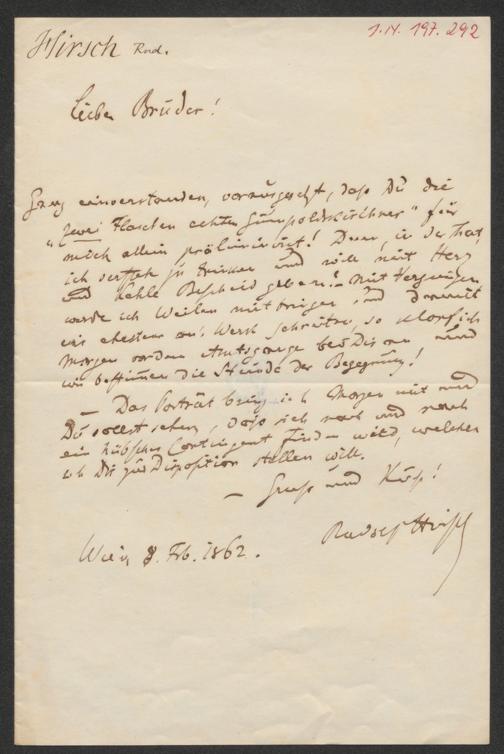 Hirsch Rud.
I.N. 197.292
Lieber Bruder!
Ganz einverstanden, vorausgesetzt, daß Du die
"zwei Flaschen echten Gumpoldskirchner" für
mich allein präliminirst! Denn, in der That,
ich verstehe zu trinken und will mit Herz
und Kehle Bescheid geben! – Mit Vergnügen
werde ich Weilen mitbringen und damit
wir ehestens an's Werk schreiten, so klopf ich
Morgen vor dem Amtsgange bei Dir an und
wir bestimmen die Stunde der Begegnung!
– Das Porträt bring ich Morgen mit und
Du sollst sehen, daß sich nach und nach
ein hübsches Contingent finden wird, welches
ich Dir zur Disposition stellen will.
– Gruß und Kuß!
Rudolf Hirsch
Wien 8. Feb. 1862.